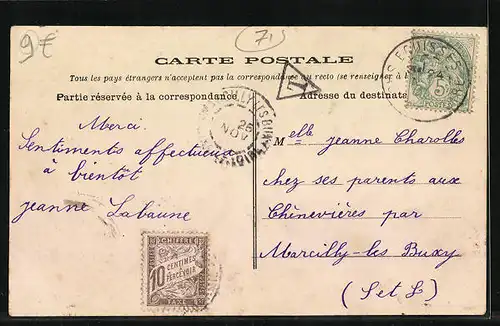 9€
71
CARTE POSTALE
Tous les pays étrangers n'acceptent pas la correspondance au recto (se renseigner à
Partie réservée à la correspondance
Adresse du destinata
T
25
NOV
24
5c
POSTES
Merci.
Sentiments affectueux
à bientôt
jeanne Labaune
Melle jeanne Charolles
chez ses parents aux
Chènevières par
Marcilly-les Buxy
(S et L)
CHIFFRE
10 CENTIMES
À PERCEVOIR
TAXE